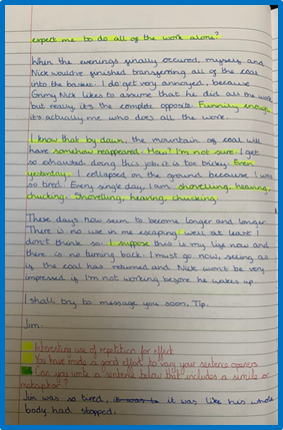 expect me to do all of the work alone?
When the evenings finally occured, myself and
Nick would've finished transferring all of the coal
into the basket. I do get very annoyed, because
Grimy Nick likes to assume that he did all the work
but really it's the complete opposite. Funnily enough
it's actually me who does all the work.
I know that by dawn, the mountain of coal will
have somehow reappeared. How? I'm not sure. I get
so exhausted doing this job it is too tricky. Even
yesterday, I collapsed on the ground because I was
so tired. Every single day I am shovelling, heaving,
chucking. Shovelling, heaving, chucking.
These days now seem to become longer and longer.
There is no use in me escaping well at least I
don't think so. I suppose this is my life now and
there is no turning back. I must go now, seeing as
is the coal has returned and Nick won't be very
impressed if I'm not working before he wakes up.
I shall try to message you soon, Tip.
Jim.
Interesting use of repetition for effect
You have made a good effort to vary your sentence openers
Can you write a sentence below that includes a simile or
metaphor?
Jim was so tired, it was to it was like his whole
body had stopped.